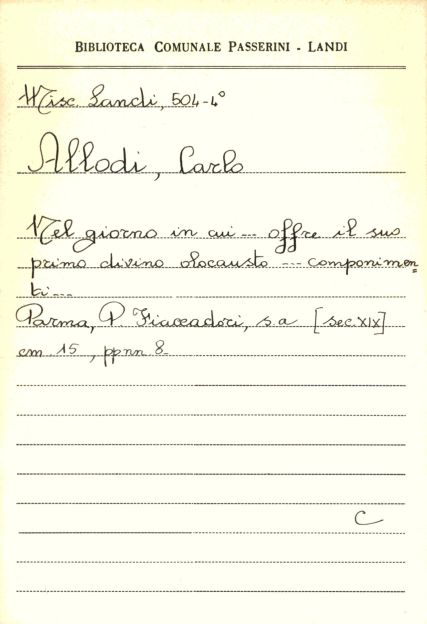 BIBLIOTECA COMUNALE PASSERINI - LANDI
Misc. Landi, 504-4°
Allodi, Carlo
Nel giorno in cui --- offre il suo
primo divino olocausto --- componimen=
ti ---
Parma, P. Fiaccadori, s.a [sec. XIX]
cm. 15, ppnn 8.
C